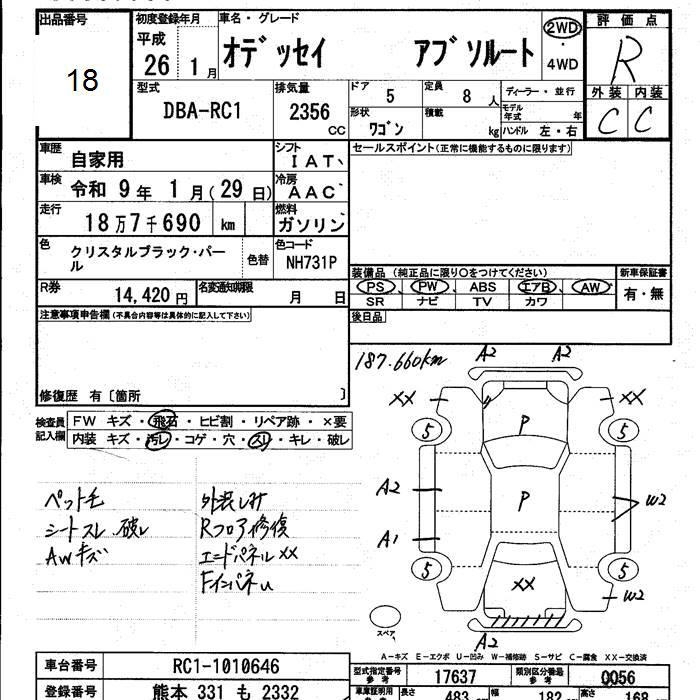 出品番号
18
初度登録年月
平成
26 1月
車名・グレード
オデッセイ アブソルート
2WD
・
4WD
評価点
R
外装 内装
C C
型式
DBA-RC1
排気量
2356
CC
ドア
5
定員
8人
形状
ワゴン
積載
kg
ディーラー・並行
モデル年式 年
ハンドル 左・右
車歴
自家用
シフト
IAT
車検
令和 9年 1月(29日)
冷房
AAC
走行
18万7千690 km
燃料
ガソリン
色
クリスタルブラック・パール
色替
色コード
NH731P
R券
14,420円
名変通知期限
月 日
セールスポイント(正常に機能するものに限ります)
装備品(純正品に限り○をつけてください)
PS PW ABS エアB AW
SR ナビ TV カワ
新車保証書
有・無
後日品
注意事項申告欄(不具合内容等は具体的に記入して下さい)
修復歴 有〔箇所 〕
検査員記入欄
FW キズ・飛石・ヒビ割・リペア跡・×要
内装 キズ・汚レ・コゲ・穴・スレ・キレ・破レ
ペット毛
シートスレ 破レ
AWキズ
外装しみ
Rフロア修復
エンドパネルXX
FインパネU
187.660km
A2 A2
XX XX
5 5
P
A2
P
W2
A1
5 5
XX
W2
スペア
A2
A-キズ E-エクボ U-凹み W-補修跡 S-サビ C-腐食 XX-交換済
車台番号
RC1-1010646
型式指定番号
参考
17637
類別区分番号
参考
0056
登録番号
熊本 331 も 2332
長さ
483
幅
182
高さ
168